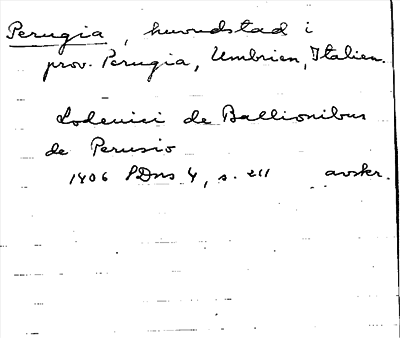 Perugia, huvudstad i
prov. Perugia, Umbrien, Italien.
Lodovici de Ballionibus
de Perusio
1406 PDns 4, s. 211 avskr.